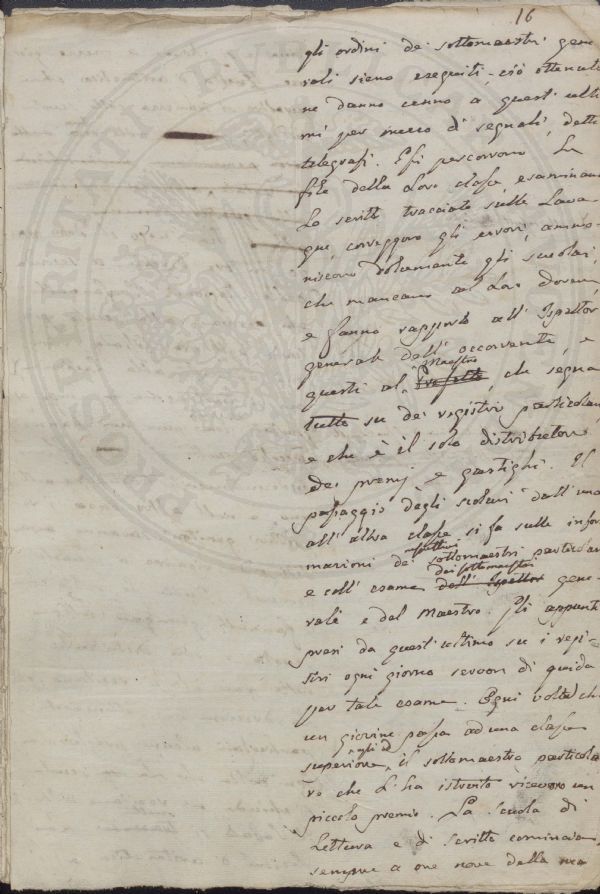 16
gli ordini dei sottomaestri gene
rali sieno eseguiti - ciò ottenuto
ne danno cenno a quest'ulti
mi per mezzo di segnali detti
telegrafi. Essi percorrono le
file della loro classe, esaminano
lo scritto tracciato sulle Lava
gne, correggono gli errori, ammo-
niscono dolcemente gli scolari,
che mancano ai loro doveri,
e fanno rapporto all' Ispettor
generale dell' occorrente, e
Maestro
questi al Prefetto, che segna
tutto su dei registri particolari
e che è il solo distributore
dei premj e gastighi. Il
passaggio degli scolari dall' una
all' altra classe si fa sulle infor
mazioni dei sottomaestri particolari
dei sottomaestri
e coll' esame dell' Ispettor gene-
rale e dal Maestro. Gli appunti
presi da quest'ultimo su i regi-
stri ogni giorno servon di guida
per tale esame. Ogni volta che
un giovine passa ad una classe
superiore, il sottomaestro particola
re che l'ha istruito ricevono un
piccolo premio. La Scuola di
Lettura e di Scritto comincia
sempre a ore nove della